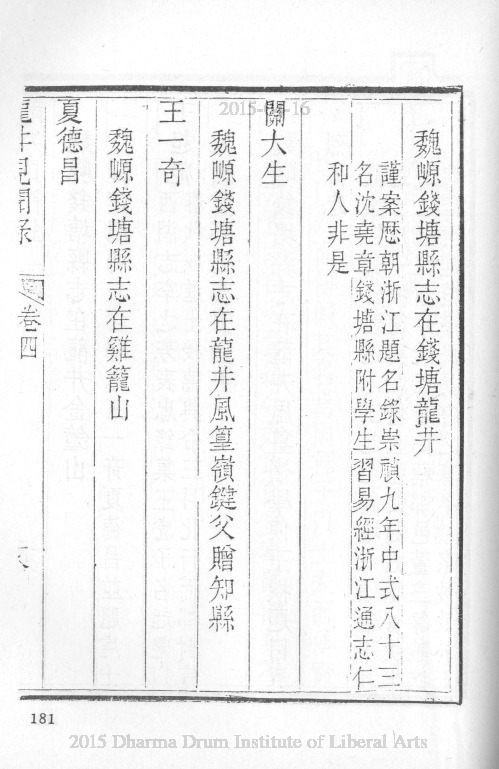 魏㟲錢塘縣志在錢塘龍井
謹案歷朝浙江題名錄崇禎九年中式八十三
名沈堯章錢塘縣附學生習易經浙江通志仁
和人非是
關大生
魏㟲錢塘縣志在龍井風篁嶺鍵父贈知縣
王一奇
魏㟲錢塘縣志在雞籠山
夏德昌
龍井見聞錄
卷四
181
2015 Dharma Drum Institute of Liberal Arts